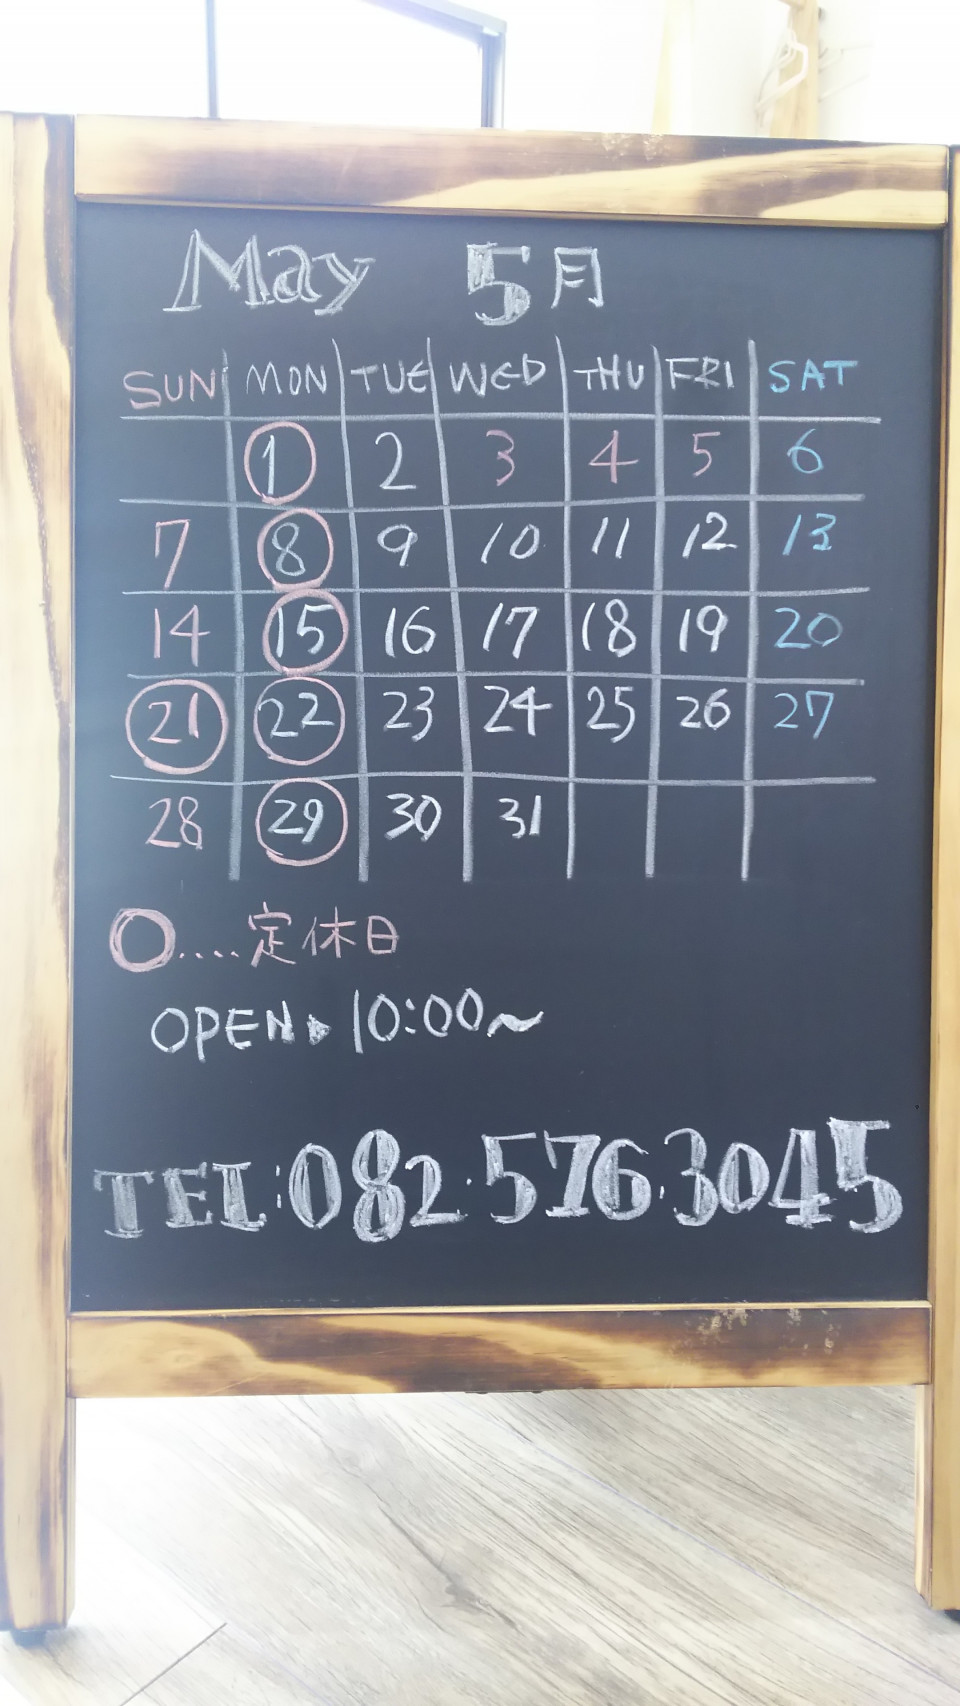 May 5月
SUN MON TUE WED THU FRI SAT
1 2 3 4 5 6
7 8 9 10 11 12 13
14 15 16 17 18 19 20
21 22 23 24 25 26 27
28 29 30 31
○....定休日
OPEN▶10:00~
TEL:082.576.3045